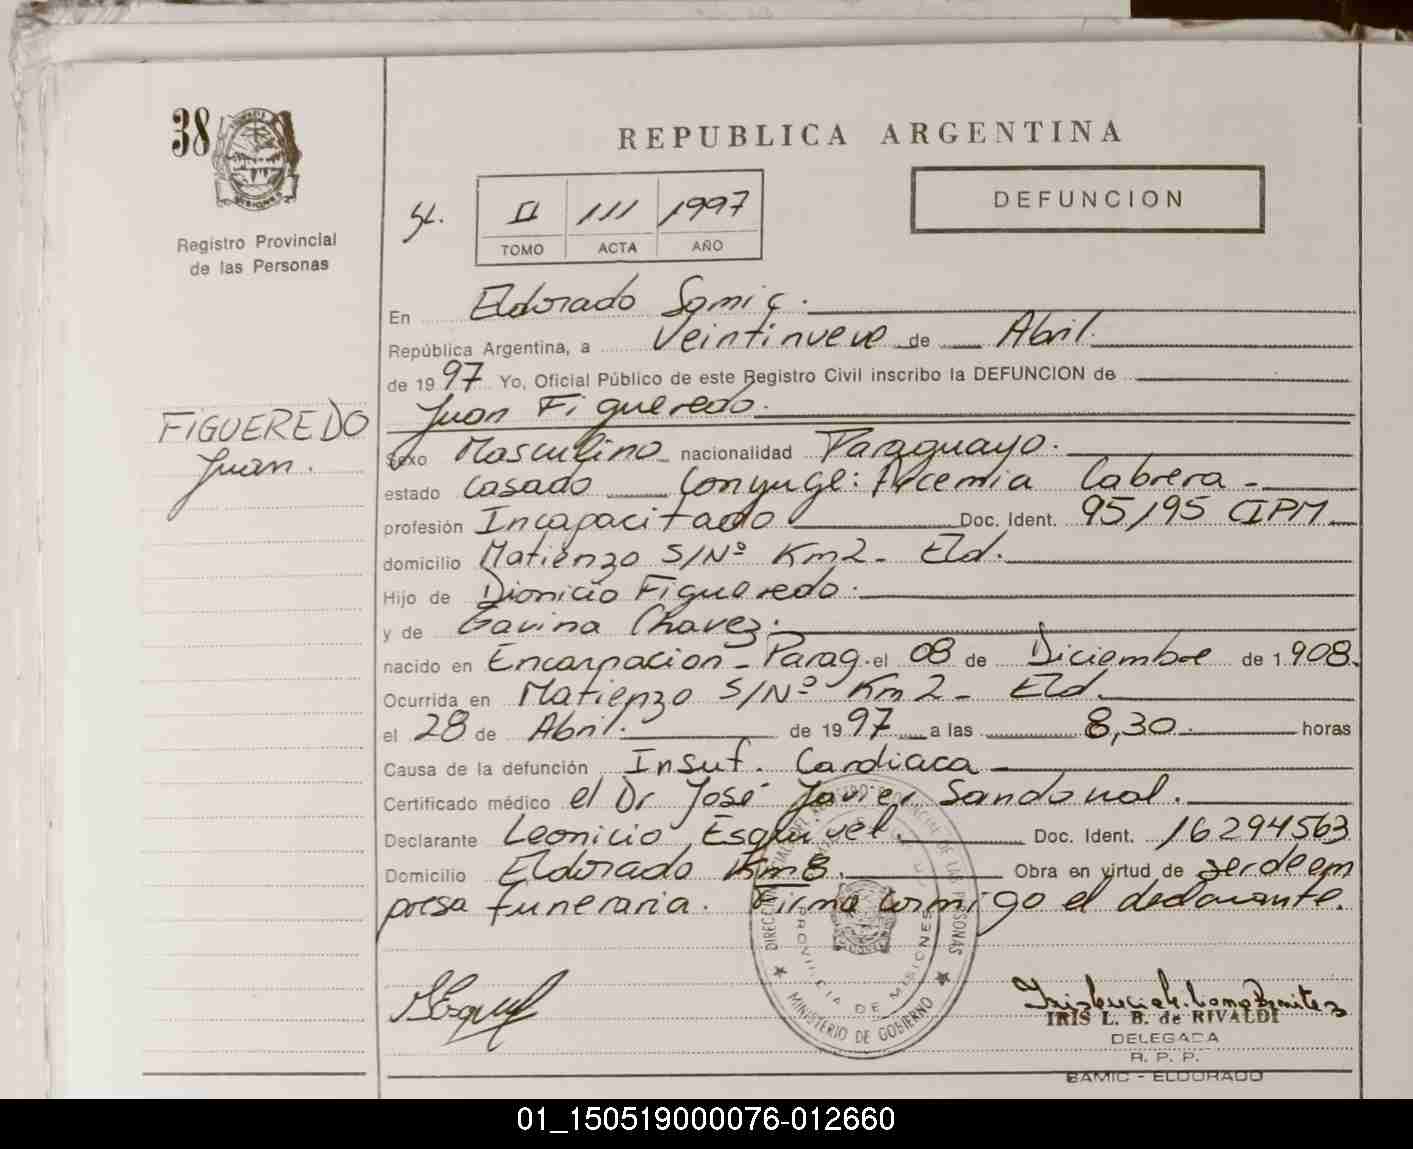 38
REPUBLICA ARGENTINA
DEFUNCION
II 111 1997
TOMO ACTA AÑO
Registro Provincial
de las Personas
En Eldorado Samic.
República Argentina, a Veintinueve de Abril.
de 1997 Yo, Oficial Público de este Registro Civil inscribo la DEFUNCION de
Juan Figueredo.
FIGUEREDO
Juan.
Sexo Masculino nacionalidad Paraguayo.
estado Casado Conyuge: Arcemia Cabrera -
profesión Incapacitado Doc. Ident. 95,195 CIPM
domicilio Matienzo S/Nº Km2- Eld.
Hijo de Dionicio Figueredo.
y de Gavina Chavez.
nacido en Encarnacion - Parag. el 08 de Diciembre de 1.908.
Ocurrida en Matienzo S/Nº Km2- Eld.
el 28 de Abril. de 1997 a las 8,30 horas
Causa de la defunción Insuf. Cardiaca
Certificado médico el Dr José Javier Sandoval.
Declarante Leonicio Esquivel. Doc. Ident. 16294563
Domicilio Eldorado Km8. Obra en virtud de serdeem
presa funeraria. Firma conmigo el declarante.
DIRECCION PROVINCIAL DE LAS PERSONAS
PROVINCIA DE MISIONES
MINISTERIO DE GOBIERNO
IRIS L. B. de RIVALDI
DELEGADA
R. P. P.
SAMIC - ELDORADO
01_150519000076-012660